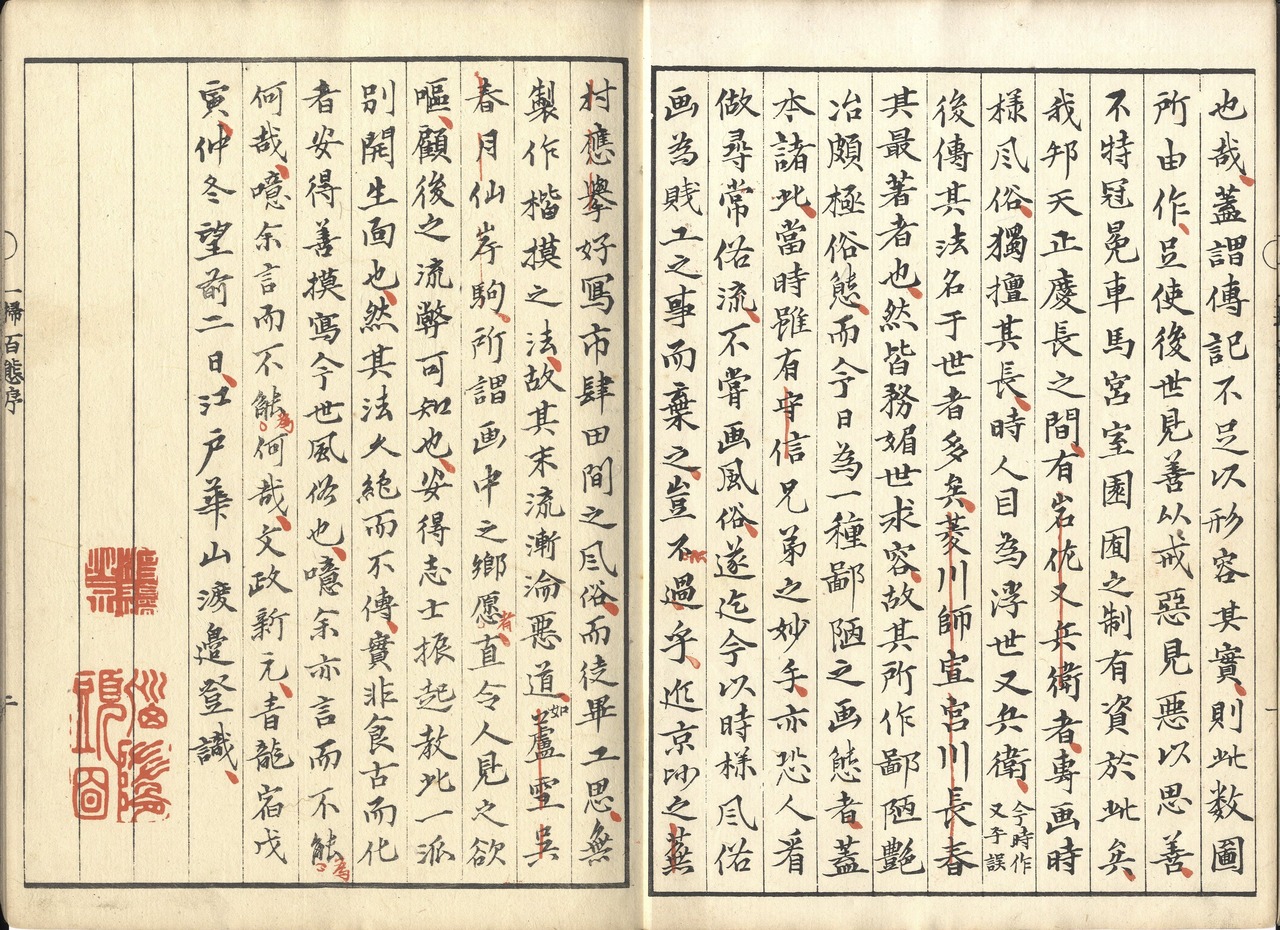 也哉蓋謂傳記不足以形容其實則此数圖
所由作足使後世見善以戒惡見惡以思善
不特冠冕車馬宮室園囿之制有資於此矣
我邦天正慶長之間有岩佐又兵衛者専画時
様風俗獨擅其長時人目為浮世又兵衛今時作又平誤
後傳其法名于世者多矣菱川師宣宮川長春
其最著者也然皆務媚世求容故其所作鄙陋艶
冶頗極俗態而今日為一種鄙陋之画態者蓋
本諸此當時雖有守信兄弟之妙手亦恐人看
做尋常俗流不嘗画風俗遂迄今以時様風俗
画為賎工之事而棄之豈不過乎近京師之蕪
村應擧好寫市肆田間之風俗而徒畢工思無
製作楷摸之法故其末流漸淪惡道如蘆雪吳
春月仙岸駒所謂画中之鄉愿者直令人見之欲
嘔顧後之流弊可知也安得志士振起救此一派
別開生面也然其法久絶而不傳實非食古而化
者安得善摸寫今世風俗也噫余亦言而不能為
何哉噫余言而不能為何哉文政新元青龍宿戊
寅仲冬望前二日江戸華山渡邉登識
一掃百態序
二